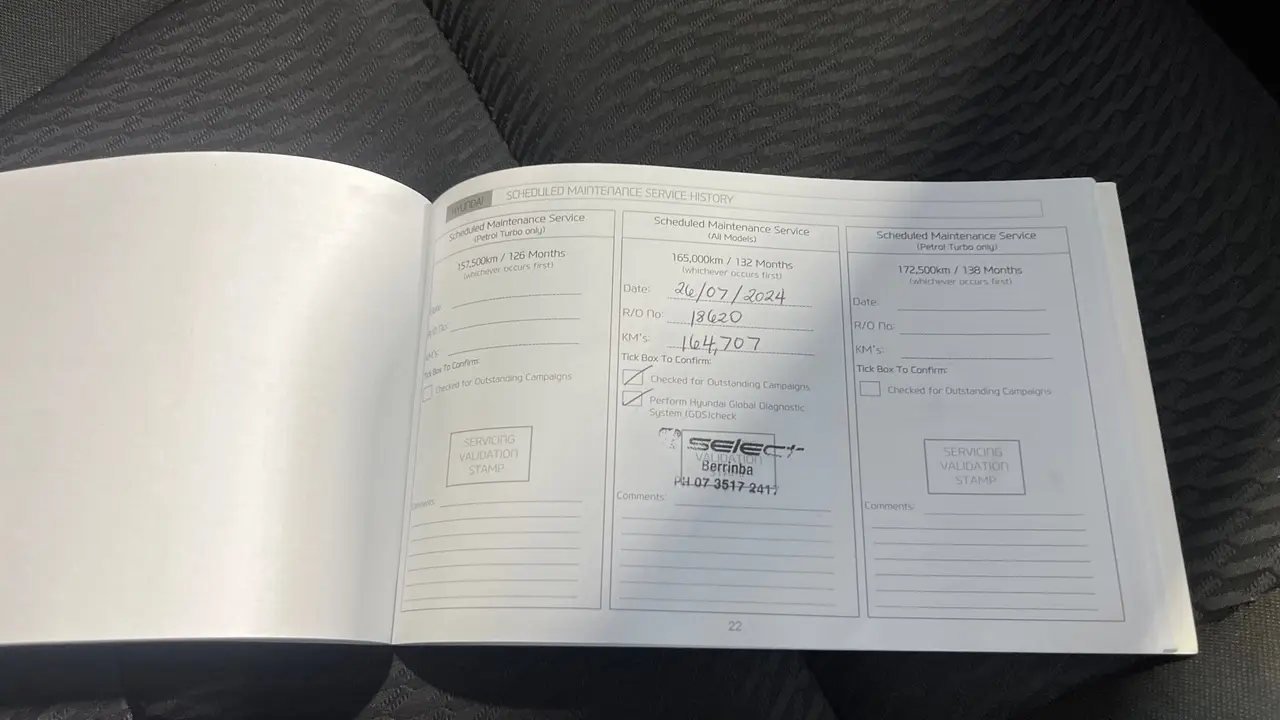 HYUNDAI SCHEDULED MAINTENANCE SERVICE HISTORY
Scheduled Maintenance Service
(Petrol Turbo only)
157,500km / 126 Months
(whichever occurs first)
Date:
R/O No:
KM's:
Tick Box To Confirm:
Checked for Outstanding Campaigns
SERVICING
VALIDATION
STAMP
Comments:
Scheduled Maintenance Service
(All Models)
165,000km / 132 Months
(whichever occurs first)
Date: 26/07/2024
R/O No: 18620
KM's: 164,707
Tick Box To Confirm:
Checked for Outstanding Campaigns
Perform Hyundai Global Diagnostic
System (GDS)check
select
VALIDATION
Berrinba
PH 07 3517 2417
Comments:
Scheduled Maintenance Service
(Petrol Turbo only)
172,500km / 138 Months
(whichever occurs first)
Date:
R/O No:
KM's:
Tick Box To Confirm:
Checked for Outstanding Campaigns
SERVICING
VALIDATION
STAMP
Comments:
22